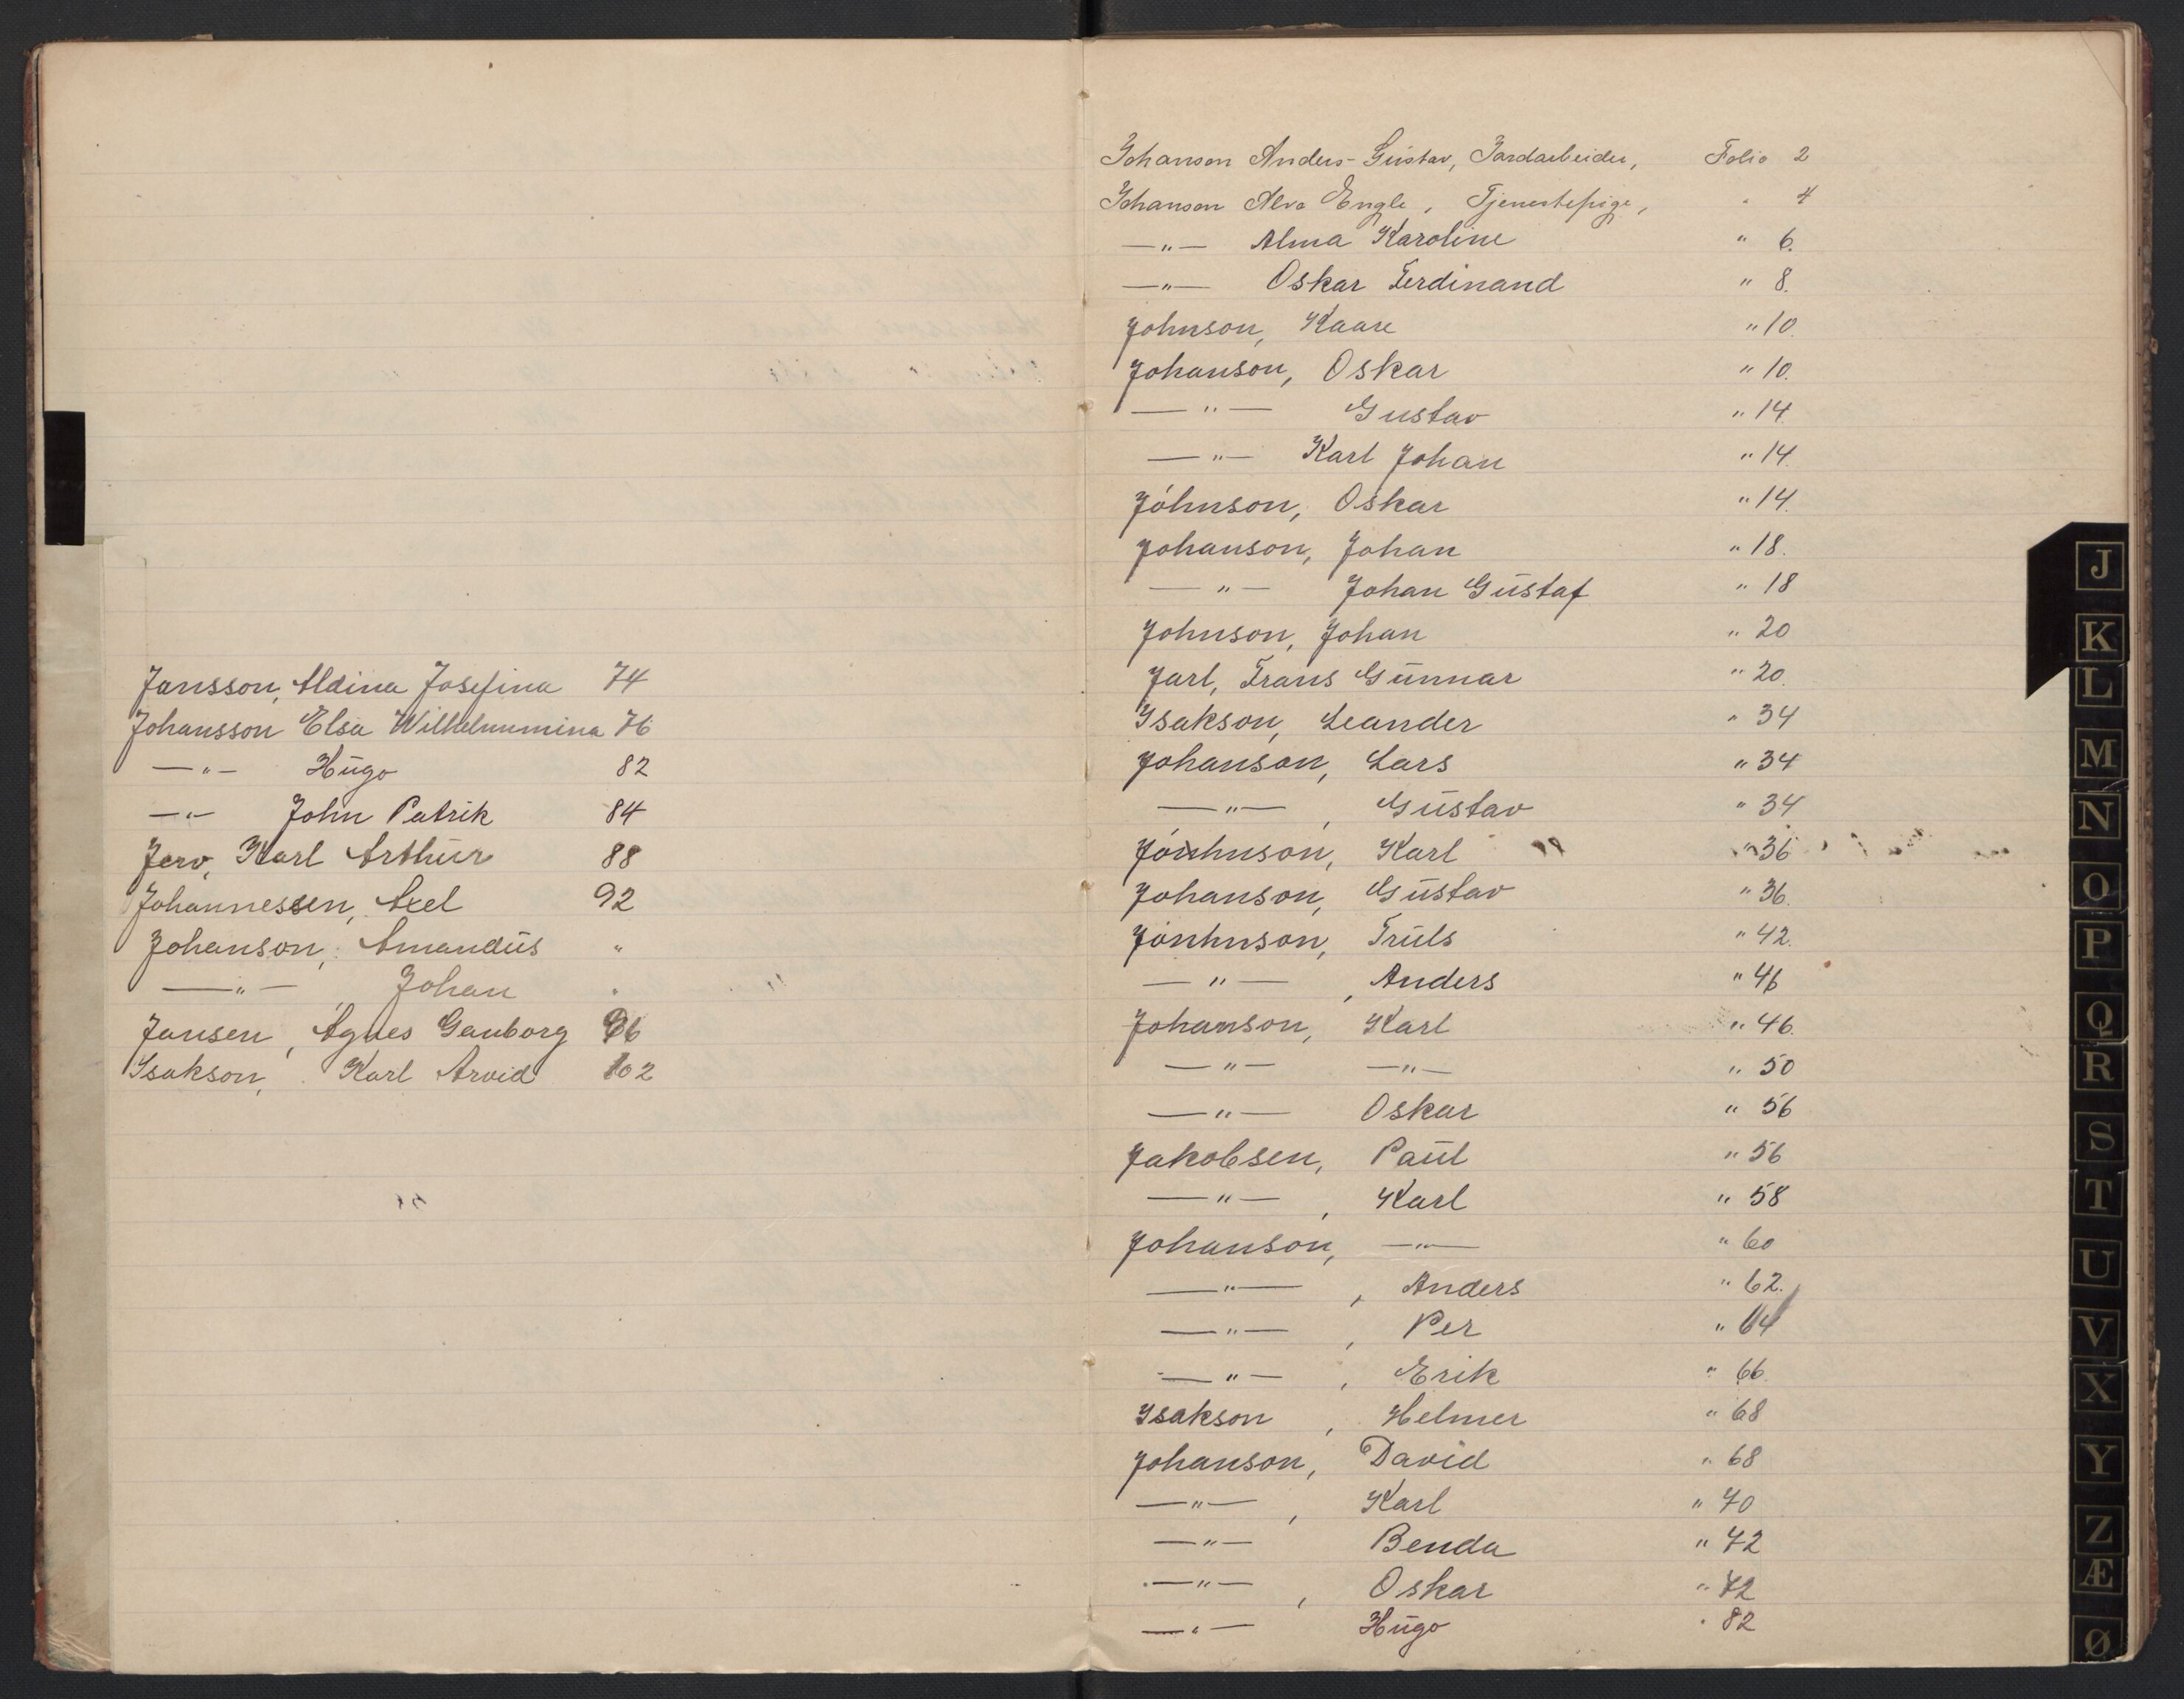 Jansson, Aldina Josefina 74
Johansson Elsa Wilhelmmina 76
—"— Hugo 82
—"— John Patrik 84
Jerv, Karl Arthur 88
Johannessen, Axel 92
Johanson, Amandus "
—"— , Johan "
Jansen, Agnes Gauborg 96
Isakson, Karl Arvid 102
Johanson Anders-Gustav, Jordarbeider, Folio 2
Johanson Alva Engle, Tjenestepige, " 4
—"— Alma Karoline " 6.
—"— Oskar Ferdinand " 8.
Johnson, Kaare " 10.
Johanson, Oskar " 10.
—"— Gustav " 14.
—"— Karl Johan " 14.
Johnson, Oskar " 14.
Johanson, Johan " 18.
—"— Johan Gustaf " 18
Johnson, Johan " 20
Jarl, Frans Gunnar " 20.
Isakson, Leander " 34
Johanson, Lars " 34
—"— , Gustav " 34
Johnson, Karl " 36
Johanson, Gustav " 36.
Jonhnson, Truls " 42.
—"— , Anders " 46
Johanson, Karl " 46.
—"— —"— " 50
—"— Oskar " 56
Jakobsen, Paul " 56
—"— , Karl " 58
Johanson, —"— " 60
—"— , Anders " 62.
—"— , Per " 64
—"— , Erik " 66.
Isakson , Helmer " 68
Johanson, David " 68
—"— , Karl " 70
—"— Benda " 72
—"— , Oskar " 72
—"— Hugo " 82
J
K
L
M
N
O
P
Q
R
S
T
U
V
X
Y
Z
Æ
Ø